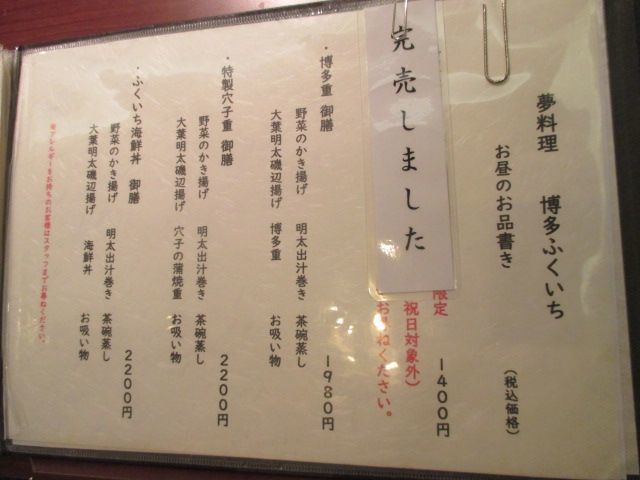 夢料理 博多ふくいち
お昼のお品書き (税込価格)
完売しました
限定 1400円
祝日対象外)
ねください。
・博多重 御膳 1980円
野菜のかき揚げ 明太出汁巻き 茶碗蒸し
大葉明太磯辺揚げ 博多重 お吸い物
・特製穴子重 御膳 2200円
野菜のかき揚げ 明太出汁巻き 茶碗蒸し
大葉明太磯辺揚げ 穴子の蒲焼重 お吸い物
・ふくいち海鮮丼 御膳 2200円
野菜のかき揚げ 明太出汁巻き 茶碗蒸し
大葉明太磯辺揚げ 海鮮丼 お吸い物
※アレルギーをお持ちのお客様はスタッフまでお尋ねください。